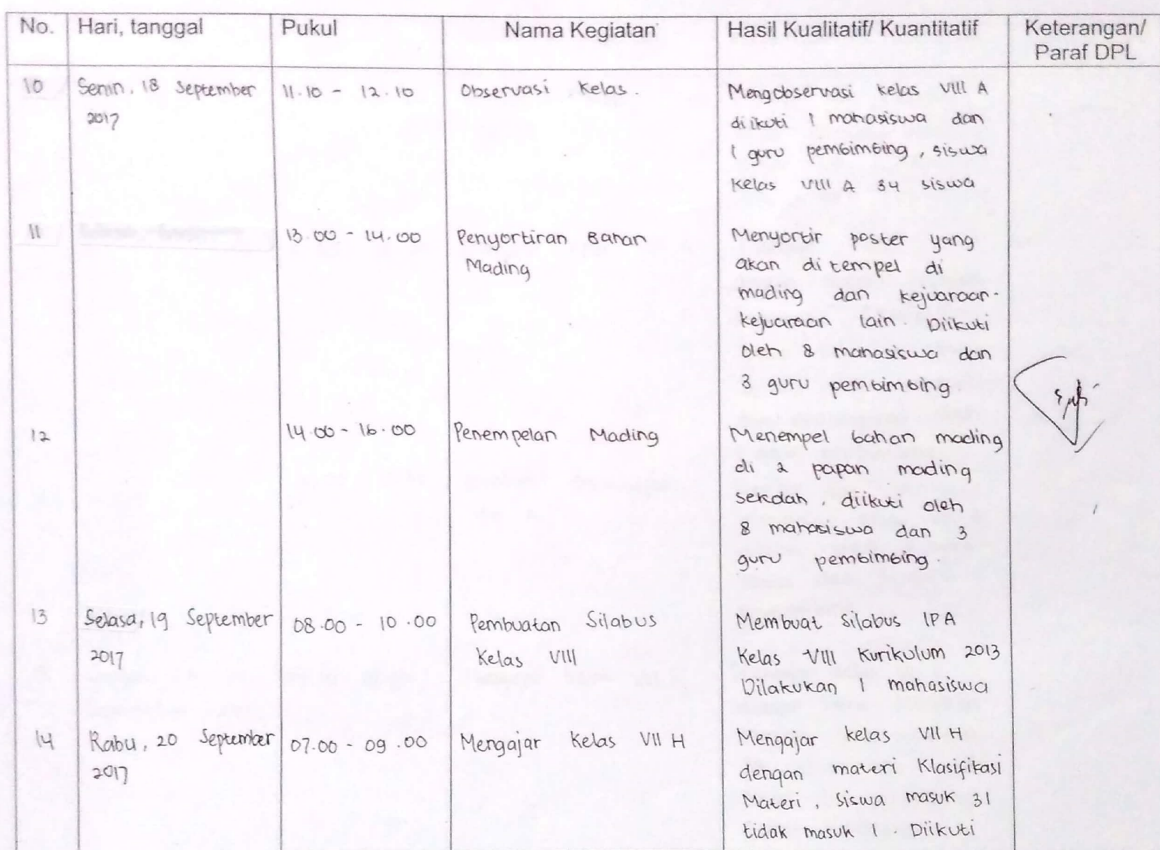 No. Hari, tanggal Pukul Nama Kegiatan Hasil Kualitatif/ Kuantitatif Keterangan/
Paraf DPL
10 Senin, 18 September 11.10 - 12.10 Observasi Kelas. Mengobservasi kelas VIII A
2017 diikuti 1 mahasiswa dan
1 guru pembimbing, siswa
Kelas VIII A 34 siswa
11 13.00 - 14.00 Penyortiran Bahan Menyortir poster yang
Mading akan di tempel di
mading dan kejuaraar-
kejuaraan lain. Diikuti
oleh 8 mahasiswa dan
3 guru pembimbing
12 14.00 - 16.00 Penempelan Mading Menempel bahan mading
di 2 papan mading
sekolah, diikuti oleh
8 mahasiswa dan 3
guru pembimbing.
13 Selasa, 19 September 08.00 - 10.00 Pembuatan Silabus Membuat Silabus IPA
2017 Kelas VIII Kelas VIII Kurikulum 2013
Dilakukan 1 mahasiswa
14 Rabu, 20 September 07.00 - 09.00 Mengajar Kelas VII H Mengajar kelas VII H
2017 dengan materi Klasifikasi
Materi, Siswa masuk 31
tidak masuk 1. Diikuti